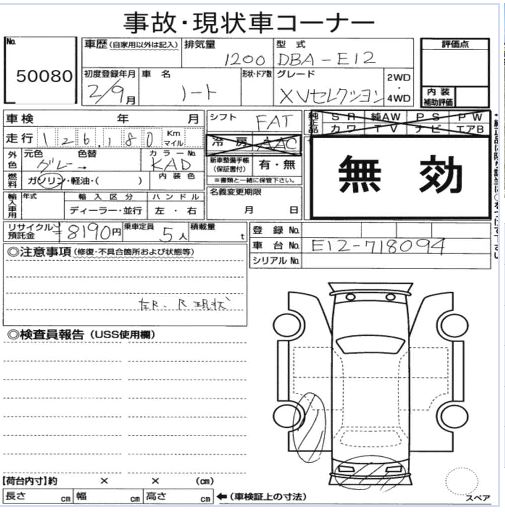 事故・現状車コーナー
No. 50080
車歴(自家用以外は記入) 排気量 1200 型式 DBA-E12 評価点
初度登録年月 2/9月 車名 ノート 形状・ドア数 グレード XVセレクション 2WD・4WD 内装補助評価
車検 年 月 シフト FAT 純正品 SR 純AW PS PW
走行 126,180 Km マイル 冷房 AAC カワ TV ナビ エアB
外色 元色 グレー→ 色替 カラーNo. KAD 新車整備手帳(保証書付) 有・無 無効
燃料 ガソリン・軽油・( ) 内装色 ※書類と一緒に保管下さい。
輸入車用 年式 輸入区分 ハンドル 名義変更期限
ディーラー・並行 左・右 月 日
リサイクル預託金 ¥8190円 乗車定員 5人 積載量 t 登録No.
車台No. E12-718094
◎注意事項(修復・不具合箇所および状態等) シリアルNo.
左R.R現状
◎検査員報告(USS使用欄)
【荷台内寸】約 × × (cm)
長さ cm 幅 cm 高さ cm ←(車検証上の寸法) スペア